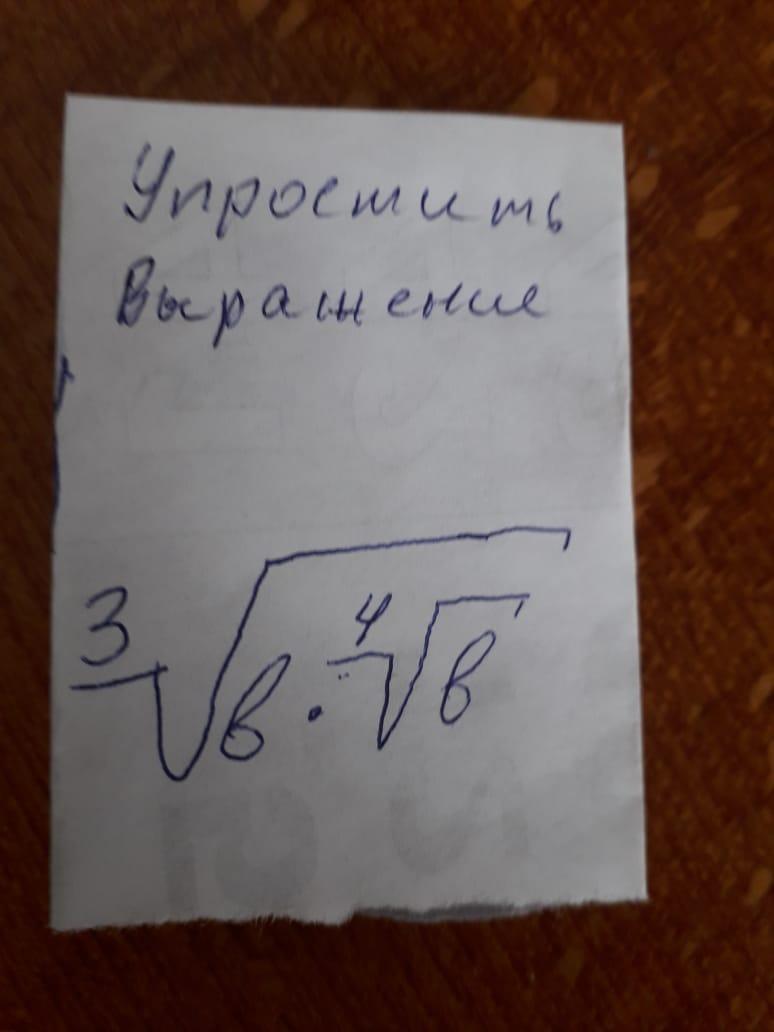 Упростить
выражение
3√в · 4√в